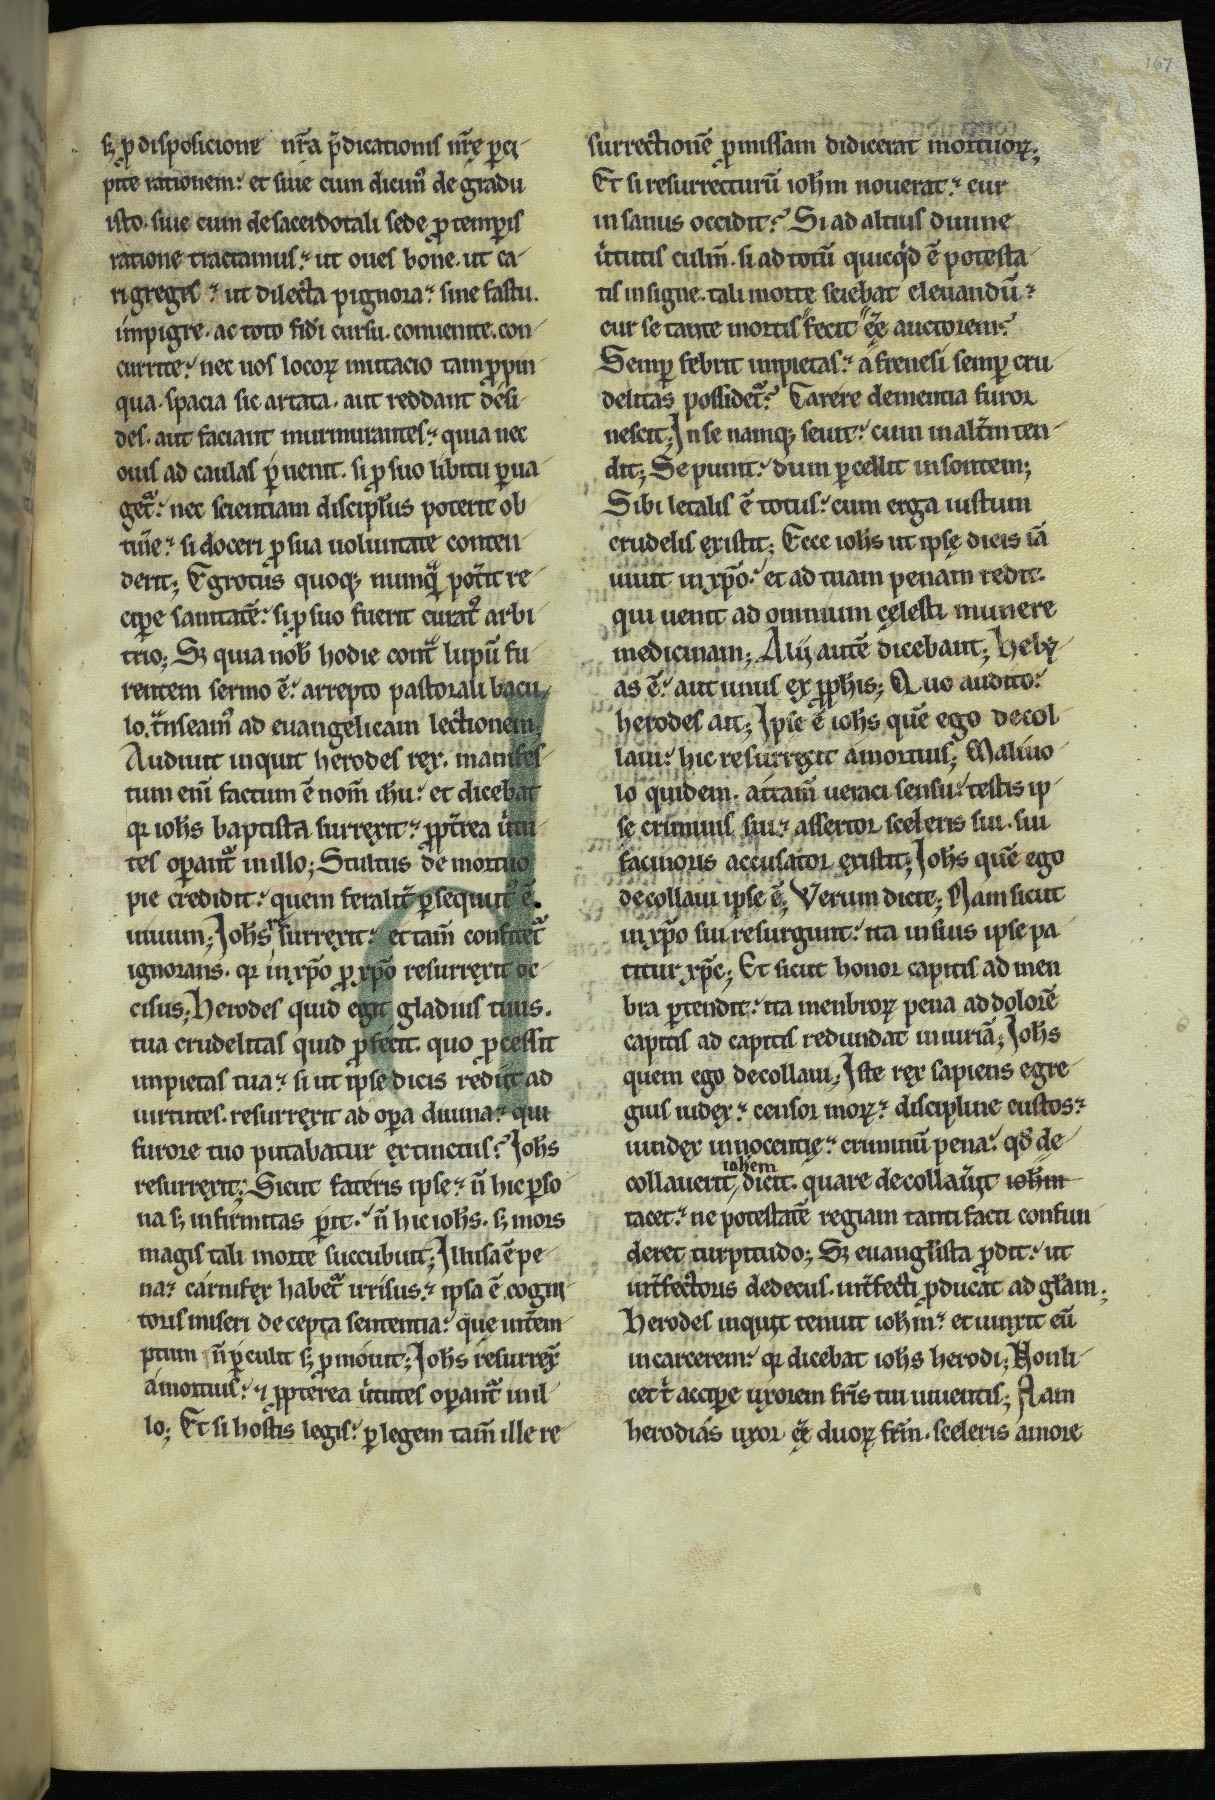 167
sꝫ ꝓ disposicione nr̄a p̄dicationis nr̄ę perci
pite rationem.᾽ et siue cum dicim᷒ de gradu
isto. siue cum de sacerdotali sede ꝓ temporis
ratione tractamus.᾽ ut oues bone. ut ca
ri gregis.᾽ ut dilecta pignora.᾽ sine fastu.
impigre. ac toto fidi cursu. conuenite. con
currite.᾽ nec uos locoꝝ mutacio tam ꝓpin
qua. spacia sic artata. aut reddant desi
des. aut faciant murmurantes.᾽ quia nec
ouis ad caulas ꝑuenit. si ꝓ suo libitu ꝑua
get᷑.᾽ nec scientiam discipl̄us poterit ob
tin̄e.᾽ si doceri ꝓ sua uoluntate conten
derit; Egrotus quoqꝫ numqͣ̄ pot̄it re
ciꝑe sanitatē.᾽ si ꝓ suo fuerit curat᷒ arbi
trio; Sꝫ quia nob̄ hodie contͣ lupū fu
rentem sermo ē.᾽ arrepto pastorali bacu
lo. tͣnseam᷒ ad euangelicam lectionem;
Audiuit inquit herodes rex. manifes
tum eni̅ factum ē nom̄ ih̄u.᾽ et dicebat
qꝛ ioh̄s baptista surrexit.᾽ ꝓpt̄rea u̇tu
tes oꝑant᷑ in illo; Stultus de mortuo
pie credidit.᾽ quem feralit̄ ꝑsequut᷒ ē.
uiuum; Ioh̄s surrexit.᾽ et tam̄ confitet᷑
ignorans. qꝛ in xp̄o ꝓ xp̄o resurrexit oc
cisus; Herodes quid egit gladius tuus.
tua crudelitas quid ꝓfecit. quo ꝓcessit
impietas tua.᾽ si ut ipse dicis rediit ad
uirtutes. resurrexit ad oꝑa diuina.᾽ qui
furore tuo putabatur extinctus? Ioh̄s
resurrexit; Sicut fateris ipse.᾽ n̄ hic ꝑso
na sꝫ infirmitas ꝑit.᾽ n̄ hic ioh̄s. sꝫ mors
magis tali morte succubuit; Illusa ē pe
na.᾽ carnifex habet᷑ irrisus.᾽ ipsa ē cogni
toris miseri decepta sententia.᾽ que int̄em
ptum n̄ ꝑculit sꝫ ꝓmouit; Ioh̄s resurrex̄
a mortuis.᾽ ⁊ ꝓpterea u̇tutes oꝑant᷑ in il
lo; Et si hostis legis.᾽ ꝑ legem tam̄ ille re
surrectionē ꝓmissam didicerat mortuoꝝ;
Et si resurrecturū ioh̄m nouerat.᾽ cur
insanus occidit? Si ad altius diuine
u̇tutis culm̄. si ad totū quicqͥd ē potesta
tis insigne. tali morte sciebat eleuandū.᾽
cur se tante mortis fecit eę̄ auctorem?
Semꝑ febrit impietas.᾽ a frenesi semꝑ cru
delitas possidet᷑? Carere dementia furor
nescit; In se namqꝫ seuit.᾽ cum in alt̄m ten
dit; Se punit.᾽ dum ꝑcellit insontem;
Sibi letalis ē totus.᾽ cum erga iustum
crudelis existit; Ecce ioh̄s ut ipsę dicis iā
uiuit in xp̄o.᾽ et ad tuam penam redit.
qui uenit ad omnium cęlesti munere
medicinam; Alij autē dicebant; Hely
as ē.᾽ aut unus ex ꝓph̄is; Quo audito.᾽
herodes ait; Ipse ē ioh̄s quē ego decol
laui.᾽ hic resurrexit a mortuis; Maliuo
lo quidem. at tam̄ ueraci sensu.᾽ testis ip
se criminis sui.᾽ assertor sceleris sui. sui
facinoris accusator existit; Ioh̄s quē ego
decollaui ipse ē; Verum dicit; Nam sicut
in xp̄o sui resurgunt.᾽ ita in suis ipse pa
titur xp̄c; Et sicut honor capitis ad men
bra ꝑtendit.᾽ ita menbroꝝ pena ad dolorē
capitis ad capitis redundat iniuriā; Ioh̄s
quem ego decollaui; Iste rex sapiens egre
gius iudex.᾽ censor moꝝ.᾽ discipline custos.᾽
uindex innocentię.᾽ criminū pena.᾽ qd̄ de
collauerit, ioh̄em dicit. quare decollau̇it ioh̄m
tacet.᾽ ne potestatē regiam tanti facti confun
deret turpitudo; Sꝫ euangl̄ista ꝓdit.᾽ ut
int̄fectoris dedecus. int̄fecti ꝓducat ad gl̄am;
Herodes inquit tenuit ioh̄m.᾽ et uinxit eū
in carcerem.᾽ qꝛ dicebat ioh̄s herodi; Non li
cet t̄ acciꝑe uxorem fr̄is tui uiuentis; Nam
herodias uxor eę̄ duoꝝ fr̄m. sceleris amore